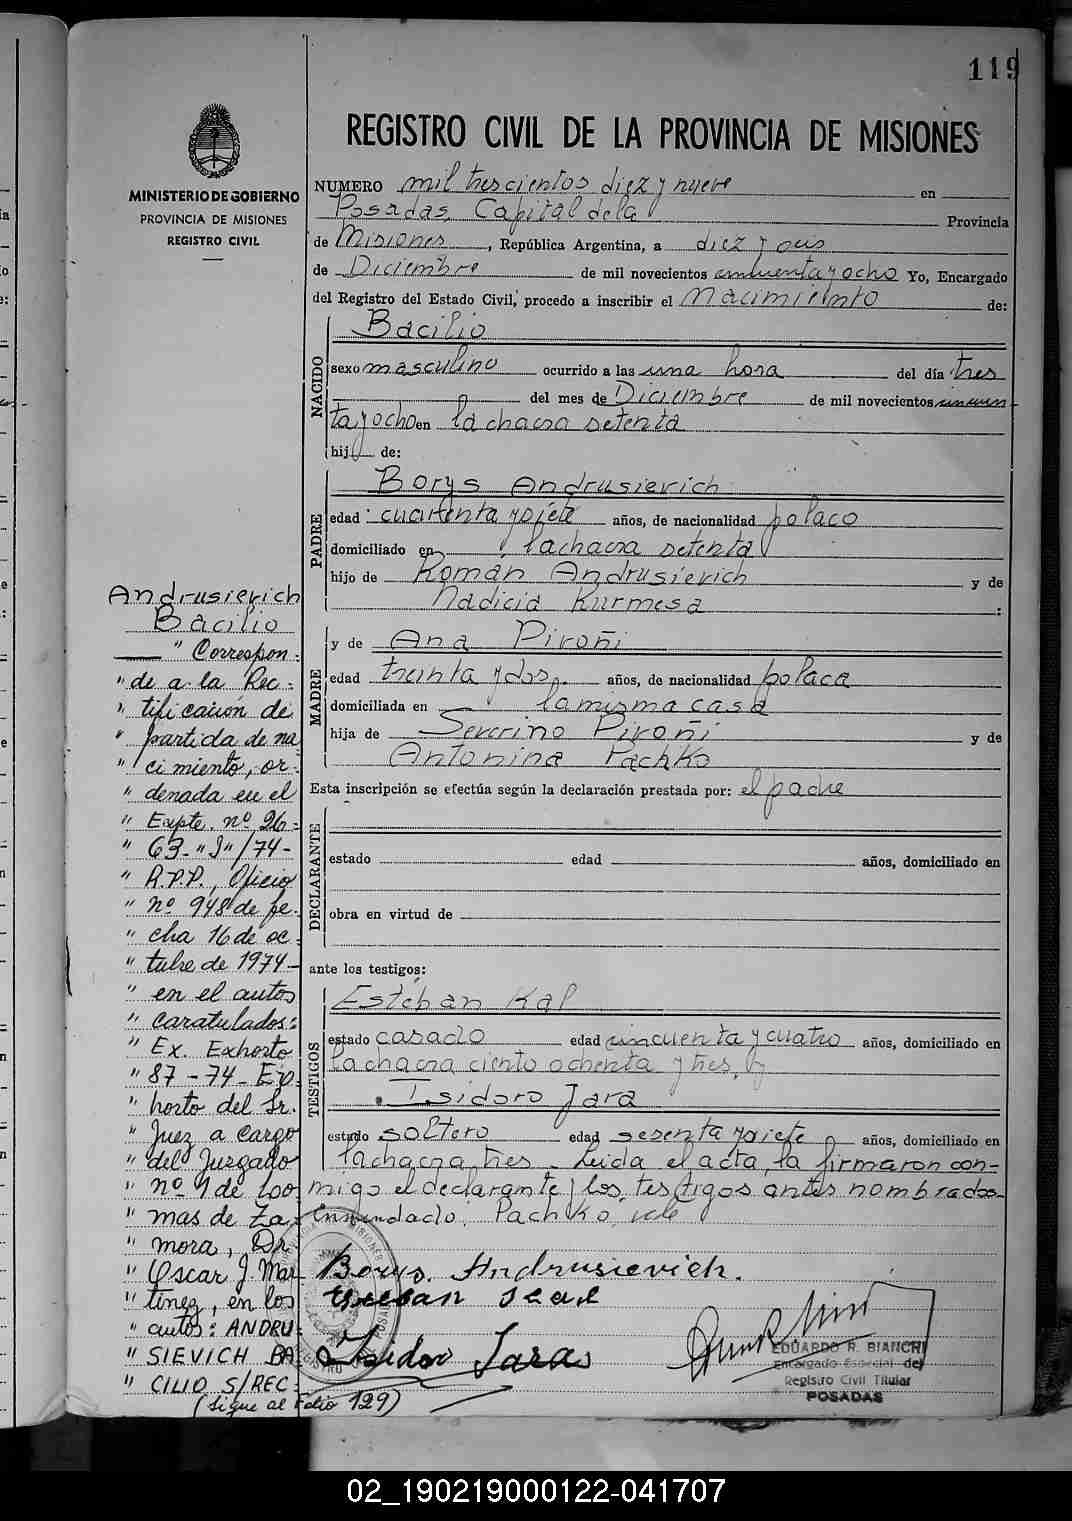 119
REGISTRO CIVIL DE LA PROVINCIA DE MISIONES
MINISTERIO DE GOBIERNO
PROVINCIA DE MISIONES
REGISTRO CIVIL
NUMERO mil trescientos diez y nueve en
Posadas, Capital de la Provincia
de Misiones, República Argentina, a diez y seis
de Diciembre de mil novecientos cincuenta y ocho Yo, Encargado
del Registro del Estado Civil, procedo a inscribir el Nacimiento de:
NACIDO
Bacilio
sexo masculino ocurrido a las una hora del día tres
del mes de Diciembre de mil novecientos cincuen-
ta y ocho en la chacra setenta
hij de:
PADRE
Borys Andrusievich
edad cuarenta y siete años, de nacionalidad polaco
domiciliado en la chacra setenta
hijo de Román Andrusievich y de
Nadicia Kurmesa :
MADRE
y de Ana Piroñi
edad treinta y dos. años, de nacionalidad polaca
domiciliada en la misma casa
hija de Severino Piroñi y de
Antonina Pachko
Esta inscripción se efectúa según la declaración prestada por: el padre
DECLARANTE
estado edad años, domiciliado en
obra en virtud de
ante los testigos:
TESTIGOS
Estéban Kal
estado casado edad cincuenta y cuatro años, domiciliado en
la chacra ciento ochenta y tres, y
Isidoro Jara
estado soltero edad sesenta y siete años, domiciliado en
la chacra tres - Leida el acta, la firmaron con-
migo el declarante y los testigos antes nombrados-
Enmendado: Pachko, vale
Borys. Andrusievich.
Isidor Jara
EDUARDO R. BIANCHI
Encargado Especial del
Registro Civil Titular
POSADAS
Andrusievich
Bacilio
" Correspon:
" de a la Rec:
" tificación de
" partida de na
" cimiento, or:
" denada en el
" Expte. nº 26:
" 63-"J"/74-
" R.P.P., Oficio
" nº 948 de fe:
" cha 16 de oc:
" tubre de 1974-
" en el autos
" caratulados:
" Ex. Exhorto
" 87-74- Ex:
" horto del Sr.
" Juez a cargo
" del Juzgado
" nº 1 de Loo
" mas de Za:
" mora, Dr.
" Oscar J. Mar
" tinez, en los
" autos: ANDRU:
" SIEVICH BA
" CILIO S/REC:
(sigue al Folio 129)
02_190219000122-041707